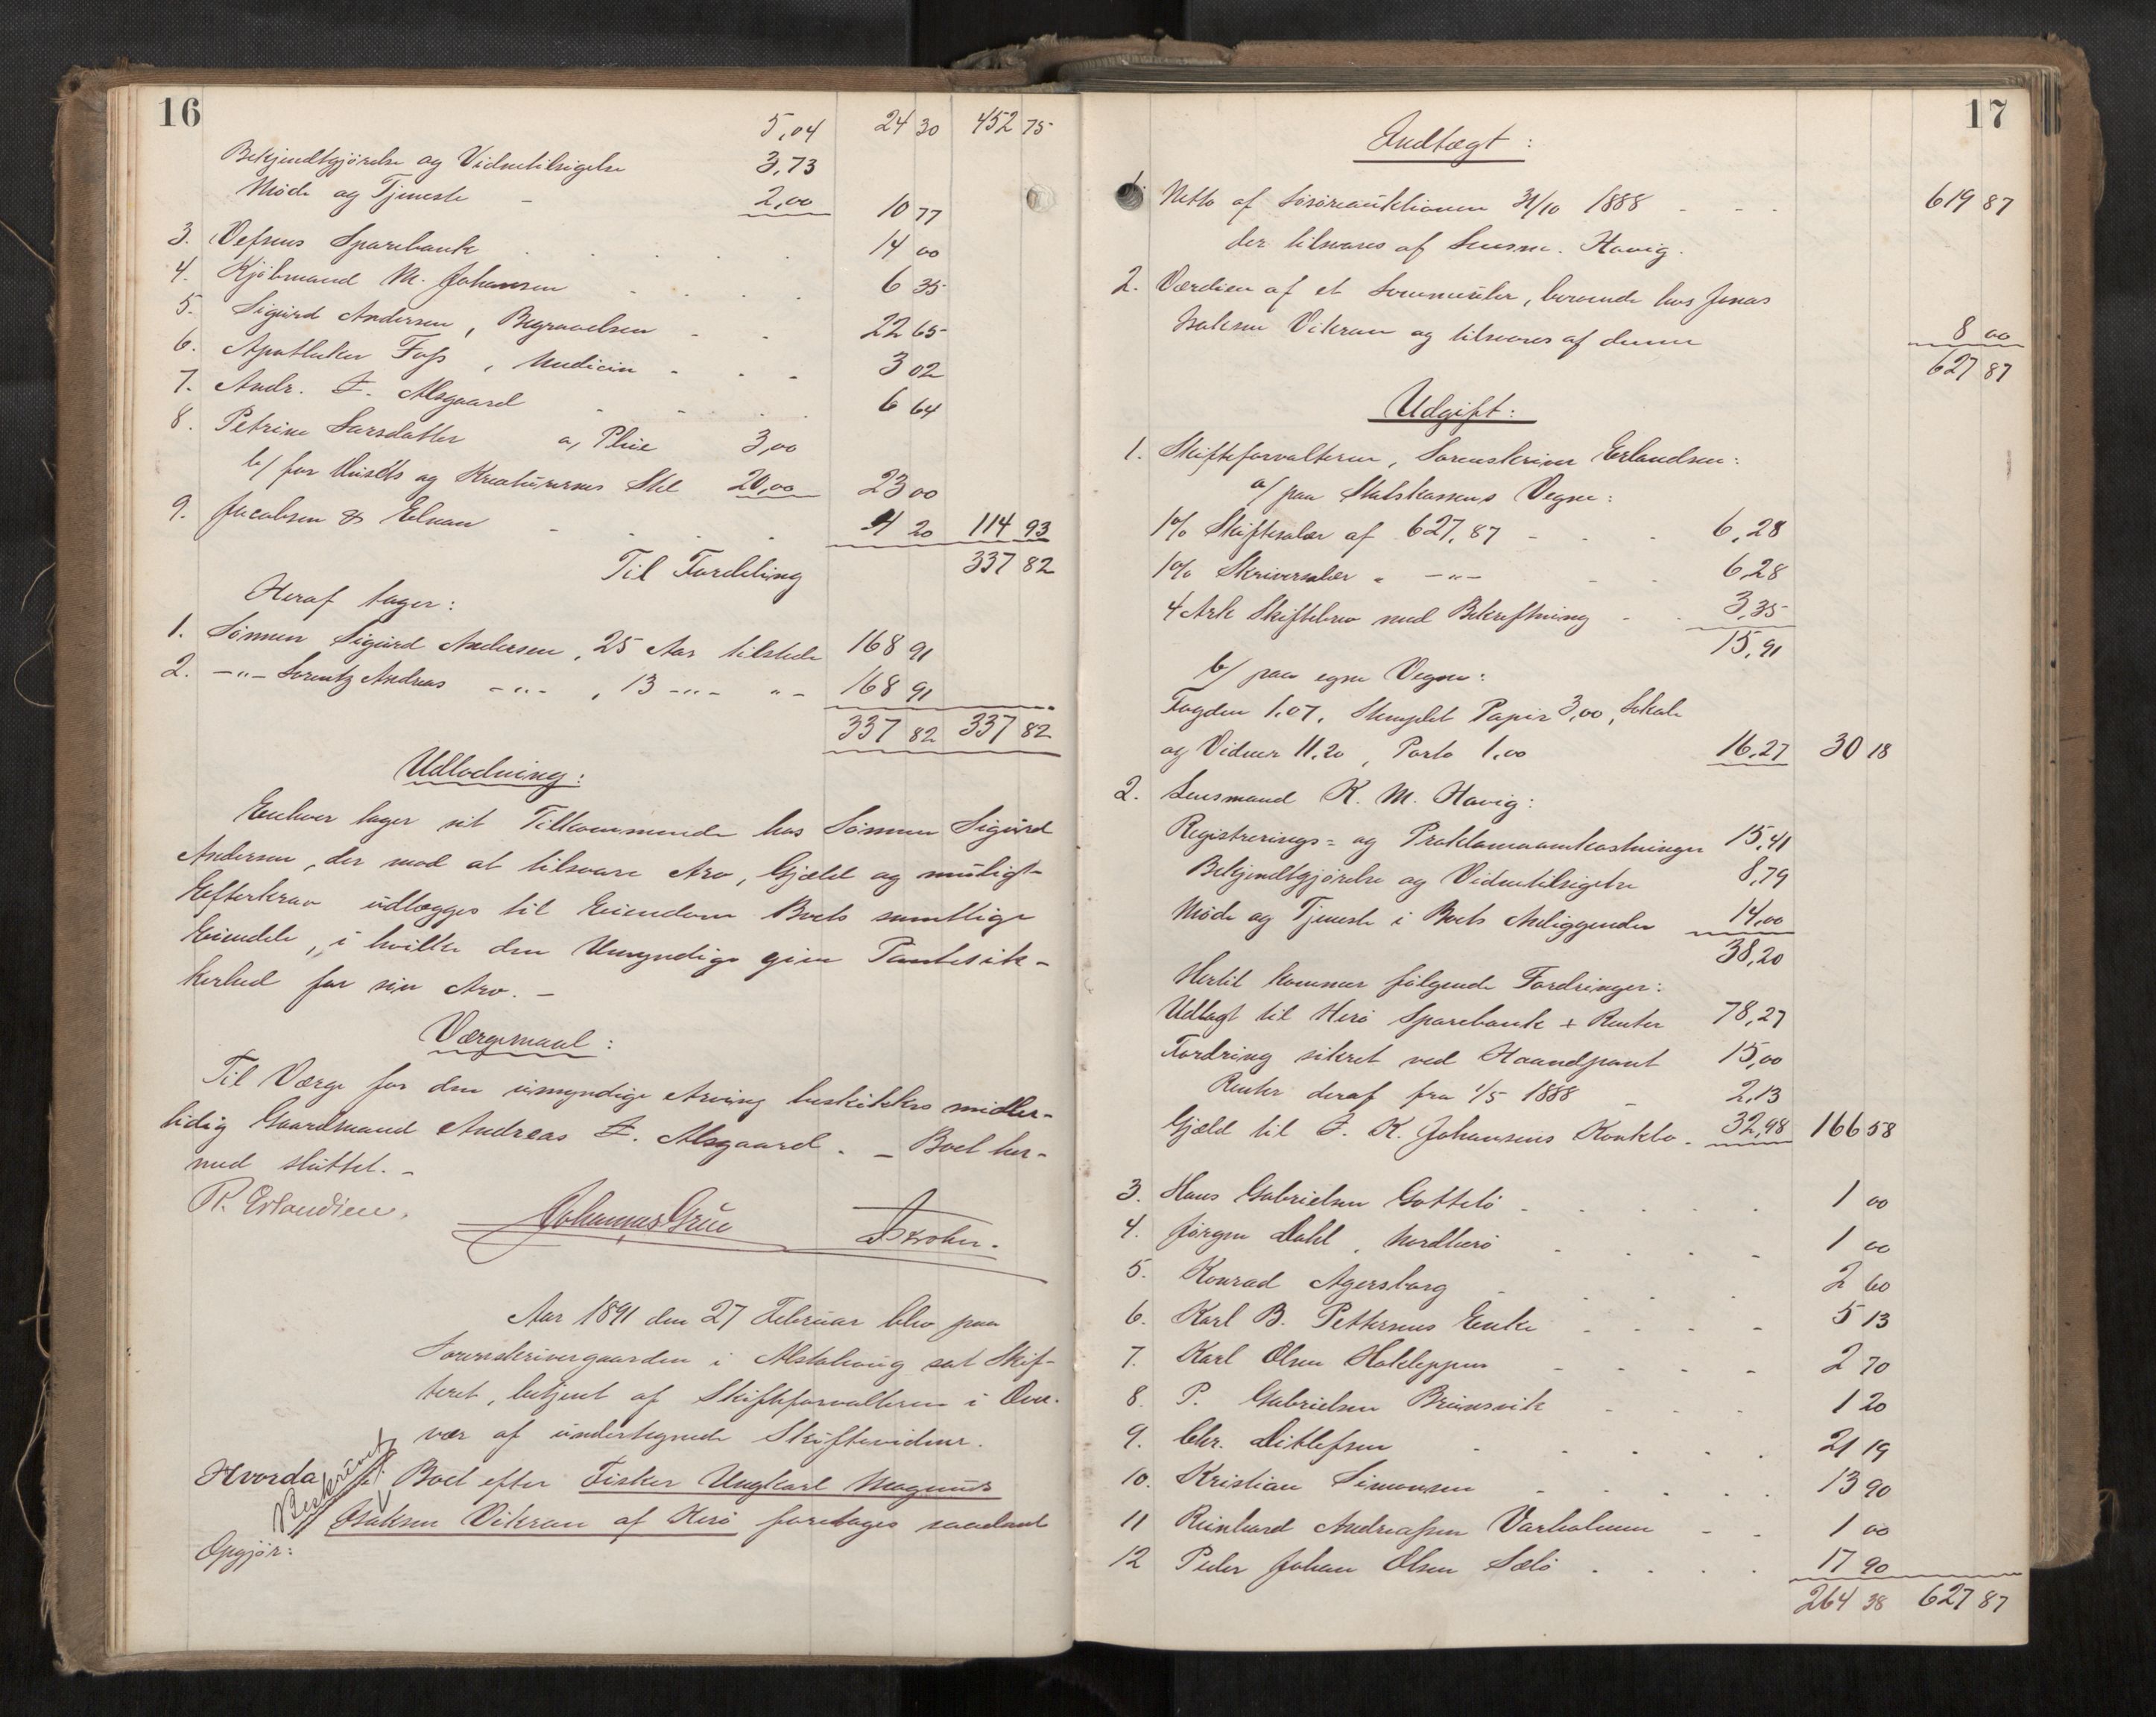 16
5,04 24 30 452 75
Bekjendtgjørelse og Vidnetilsigelse 3,73
Møde og Tjeneste - 2,00 10 77
3. Vefsens Sparebank 14 00
4. Kjøbmand M. Johansen 6 35
5. Sigurd Andersen, Begravelsen 22 65
6. Apotheker Foss, Medicin 3 02
7. Andr. Z. Alsgaard 6 64
8. Petrine Larsdatter a/ Pleie 3,00
b/ for Huset og Kreaturernes Stel 20,00 23 00
9. Jacobsen & Elnan 4 20 114 93
Til Fordeling 337 82
Heraf tager:
1. Sønnen Sigurd Andersen, 25 Aar tilstede 168 91
2. -"- Lorentz Andreas -"-, 13 -"- "- 168 91
337 82 337 82
Udlodning:
Enhver tager sit Tilkommende hos Sønnen Sigurd
Andersen, der mod at tilsvare Arv, Gjæld og muligt
Efterkrav udlægges til Eiendom Boets samtlige
Eiendele, i hvilke den Umyndige gives Pantesik-
kerhed for sin Arv. -
Værgemaal:
Til Værge for den umyndige Arving beskikkes midler-
tidig Gaardmand Andreas Z. Alsgaard. - Boet her-
med sluttet. -
R. Erlandsen. Johannes Grüe
Aar 1891 den 27 Februar blev paa
Sorenskrivergaarden i Alstahoug sat Skif-
teret, betjent af Skifteforvalteren i Over-
vær af undertegnede Skiftevidner.
Hvorda
Beskrevet
Boet efter Fisker Ungkarl Magnus
Isaksen Vikran af Herø foretages saadant
Opgjør:
17
Indtægt:
1. Netto af Løsøreauktionen 31/10 1888 - - - 619 87
der tilsvares af Lensm. Havig.
2. Værdien af et Lommeuhr, beroende hos Jonas
Isaksen Vikran og tilsvares af denne 8 00
627 87
Udgift:
1. Skifteforvalteren, Sorenskriver Erlandsen:
a/ paa Statskassens Vegne:
1% Skiftesalær af 627,87 - - - 6,28
1% Skriversalær " -"- - - 6,28
4 Ark Skiftebrev med Bekræftning - - 3,35
15,91
b/ paa egne Vegne:
Fogden 1.07, Stemplet Papir 3,00, Lokale
og Vidner 11.20, Porto 1,00 16,27 30 18
2. Lensmand K. M. Havig:
Registrerings- og Proklamaomkostninger 15,41
Bekjendtgjørelse og Vidnetilsigelse 8,79
Møde og Tjeneste i Boets Anliggender 14,00
38,20
Hertil kommer følgende Fordringer:
Udlagt til Herø Sparebank + Renter 78,27
Fordring sikret ved Haandpant 15,00
Renter deraf fra 1/5 1888 - 2,13
Gjæld til J. K. Johansens Konkbo. 32,98 166 58
3. Hans Gabrielsen Gottelø 1 00
4. Jørgen Dahl, Nordherø 1 00
5. Konrad Agersborg 2 60
6. Karl B. Pettersens Enke 5 13
7. Karl Olsen Holkleppen 2 70
8. P. Gabrielsen Brunsvik 1 20
9. Chr. Ditlefsen 21 19
10. Kristian Simonsen 13 90
11 Reinhard Andreassen Varholmen 1 00
12 Peder Johan Olsen Sælø 17 90
264 38 627 87